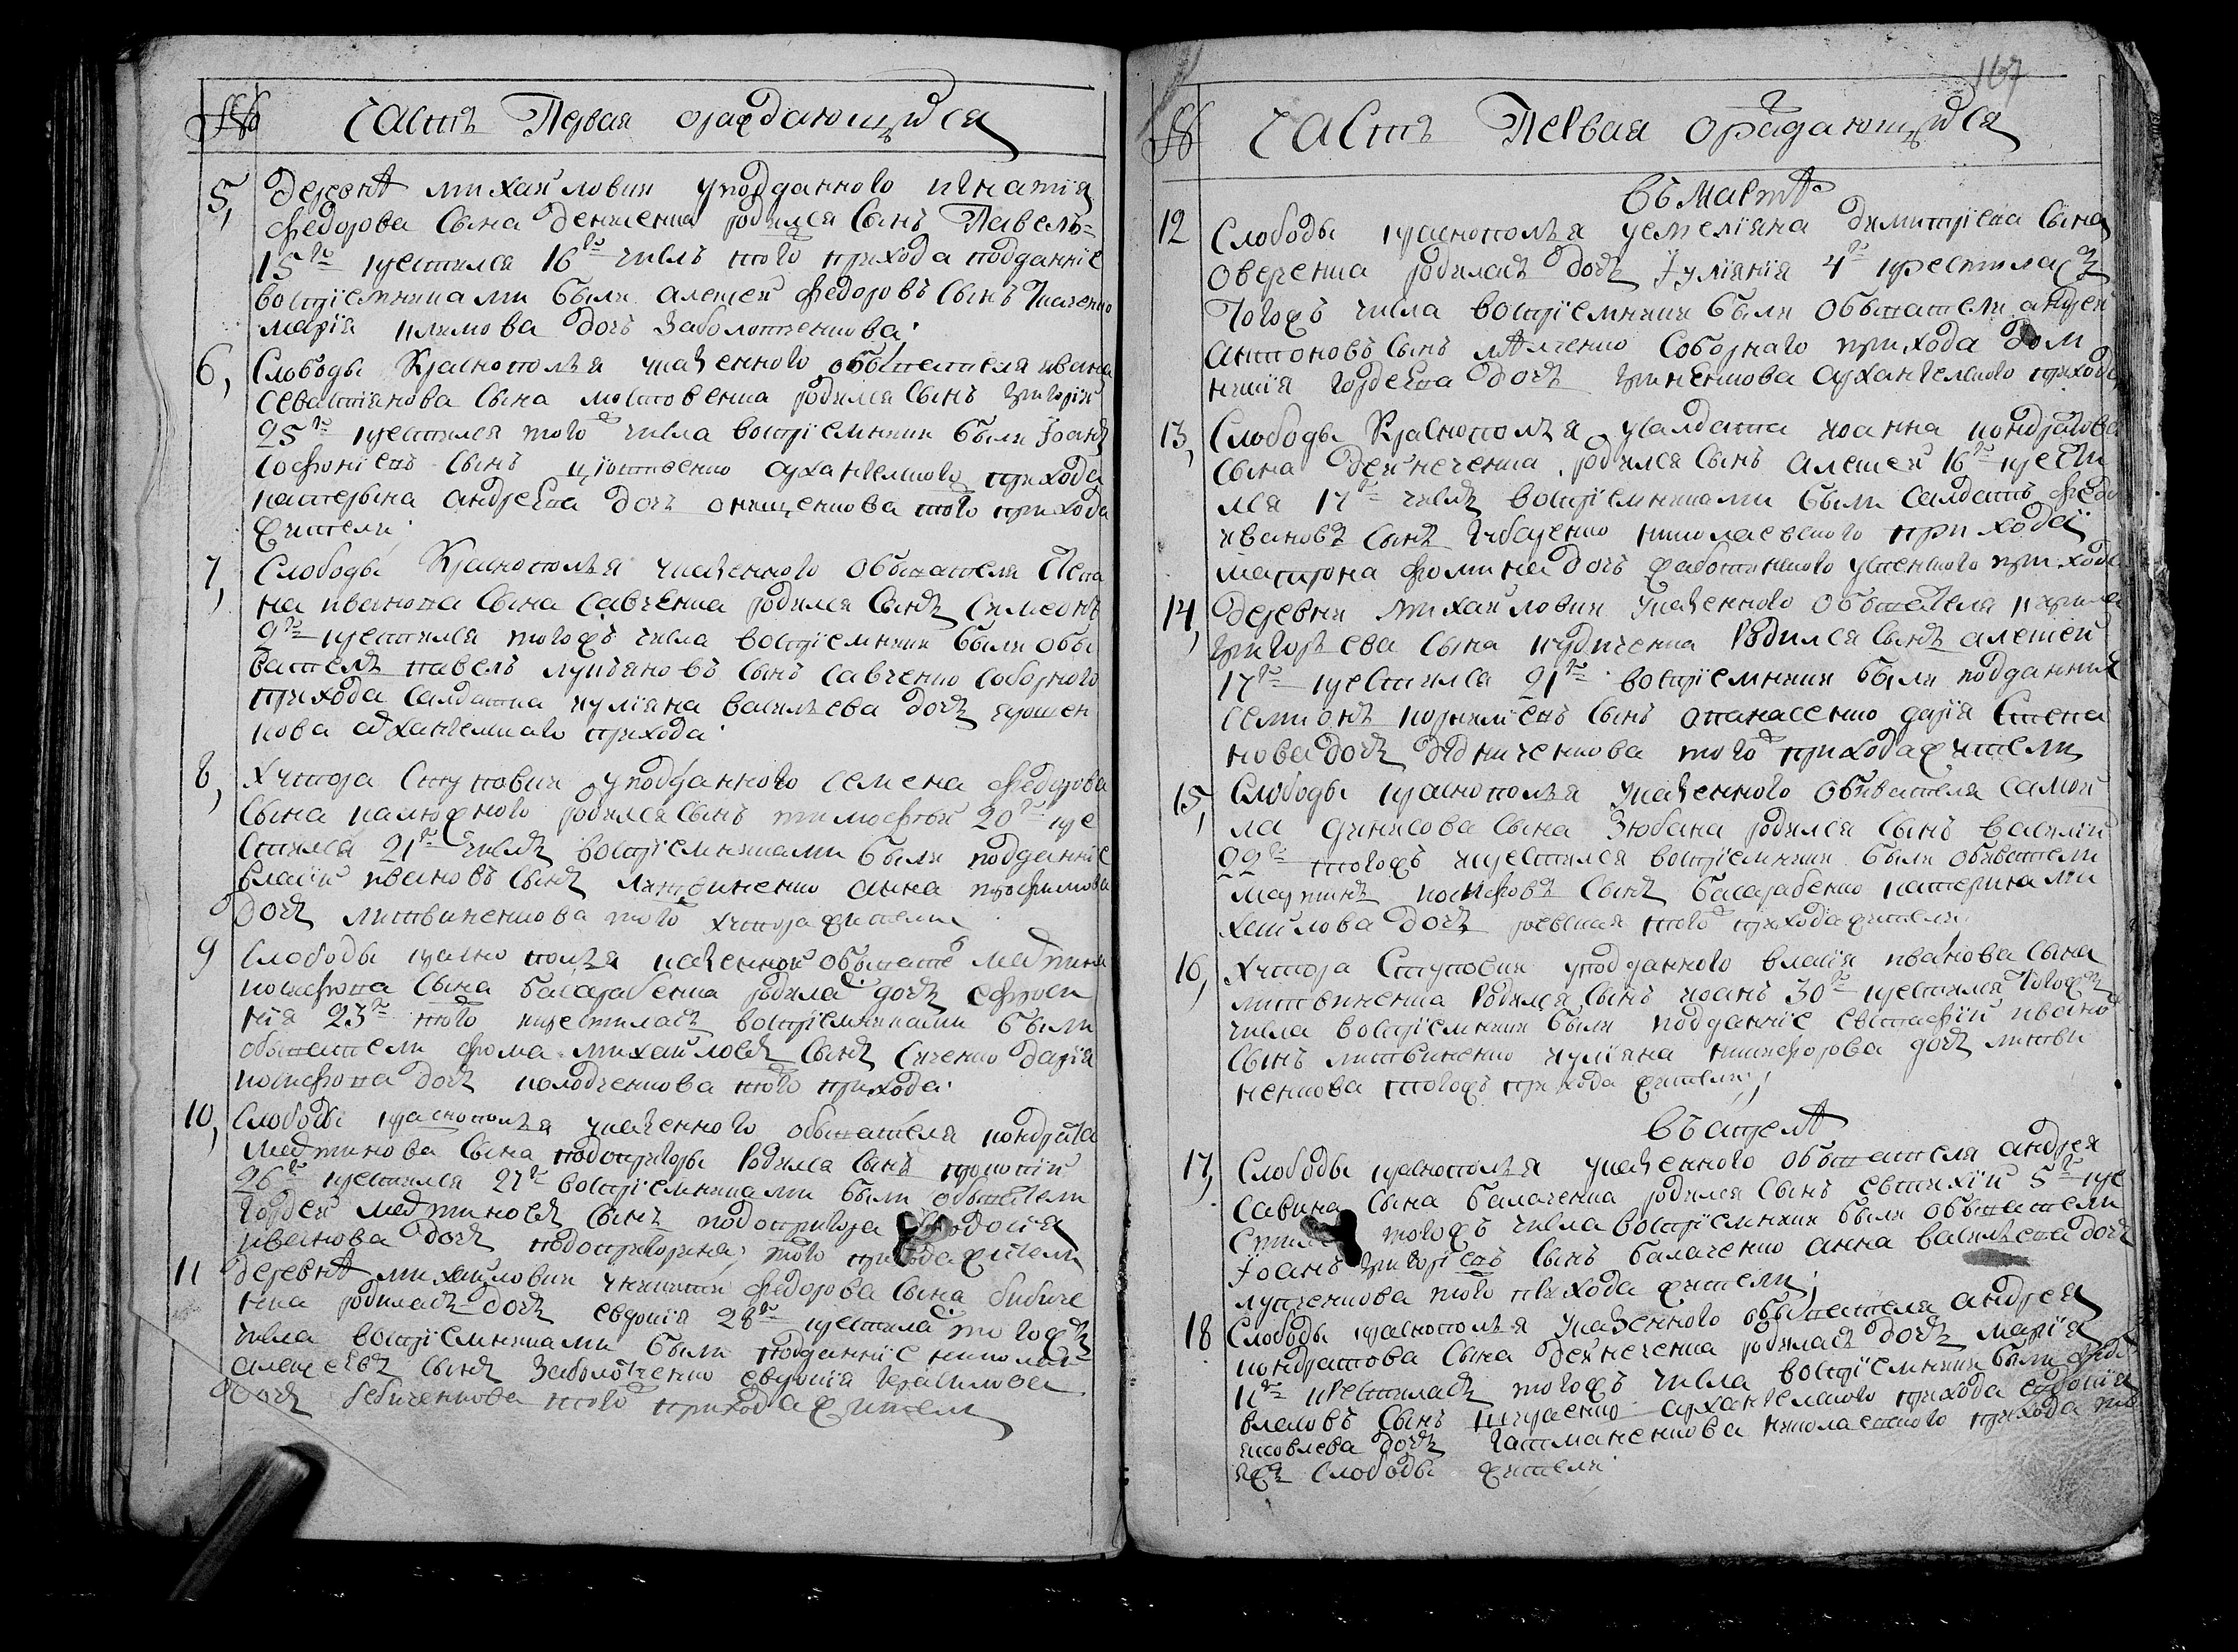 № Часть Первая ораждающихся
5, Деревнѣ михайловки уподданного игнатія
федорова сына родился сынъ Павелъ
15го крестился 16го числъ того прихода подданніе
воспріемниками были алексей федоровъ сынъ
марія климова дочь заболотченкова;
6, Слободы Краснополья у казенного обывателя ивана
севастіянова сына московенка родился сынъ григорій
25го крестился того ж числа воспріемники были Іоанъ
софроніевъ сынъ архангелского прихода
катерына андреева дочь онищенкова того прихода
жители;
7, Слободы Краснополья у казенного обывателя Степа
на иванова сына савченка родился сынъ симеонъ
9го крестился тогожъ числа воспріемники были обы
вателъ павелъ лукъяновъ сынъ савченко соборного
прихода салдатка иуліяна василъева дочъ
кова архангелского прихода
8, Хутора Ступовки уподданного семена федорова
сына калюжного родился сынъ тимофей 20го кре
стился 21го числъ воспріемниками были подданніе
власій ивановъ сынъ литвиненко анна трофимова
дочъ литвиненкова того хутора жители
9 слободы красно полья казенного обывате мартина
иосифова сына басарабенка родила дочъ ефроси
нія 23го того икрестиласъ воспріемниками были
обыватели фома михайловъ сынъ сиченко дарія
иосифова дочъ колодченкова того прихода
10, Слободы краснополья у казенного обывателя кондрата
мартинова сына подопригоры родился сынъ прокопій
26го крестился 27го воспріемниками были обыватели
гордей мартиновъ сынъ подопригора
иванова дочъ подопригорина; того прихода жители
11 деревнѣ михайловки у никити федорова сына бибиче
нка родиласъ дочъ евдокія 28го крестилас тогожъ
числа воспріемниками были подданніе николай
алексеевъ сынъ заболотченко евдокія герасимова
дочъ бебиченкова того прихода жители
167
№ Часть Первая ораждающихся
въ мартѣ
12 Слободы краснополья у емеліяна димитріева сына
оверченка родиласъ дочъ Іуліянія 4го крестиласъ
Тогожъ числа воспріемники были обыватели андрей
антоновъ сынъ соборнаго прихода дом
никія гордеева дочъ гриненкова архангелского прихода
13, Слободы Краснополья у салдата иоанна кондратова
сына дейнеченка родился сынъ алексей 16го крести
лся 17го числъ воспріемниками были салдатъ федо
ивановъ сынъ николаевского прихода
матрона фомина дочъ успенского прихода
14, деревни михайловки у казенного обывателя кирила
григоръева сына кудиченка Родился сынъ алексей
17го крестился 21го воспріемники были подданніе
семионъ корниліевъ сынъ опанасенко дарія степа
нова дочъ того прихода жители
15, Слободы краснополья у казенного обивателя самой
ла динисова сына Зюбана родился сынъ василій
22го тогожъ икрестился воспріемники были обиватели
мартинъ иосифовъ сынъ басарабенко катерина ми
хайлова дочъ того прихода жители;
16, Хутора Ступовки уподданного власія иванова сына
литвиненка Родился сынъ иоанъ 30го крестился Тогожъ
числа воспріемники были подданніе евстафій ивано
сынъ литвиненко иуліяна никифорова дочъ литви
ненкова тогожъ прихода жители;
въ апрелѣ
17, Слободы краснополья у казенного обывателя андрея
савина сына балаченка родился сынъ евтихій 5го кре
стилс тогожъ числа воспріемники были обыватели
Іоанъ григоріевъ сынъ балаченко анна василъева дочъ
лупченкова того прихода жители;
18 Слободы краснополья у казенного обывателя андрея
кондратова сына дейнеченка родиласъ дочъ марія
11го крестиласъ тогожъ числа воспріемники были
власовъ сынъ архангелского прихода евдокия
яковлева дочъ гатманенкова николаевского прихода то
яжъ слободы жители